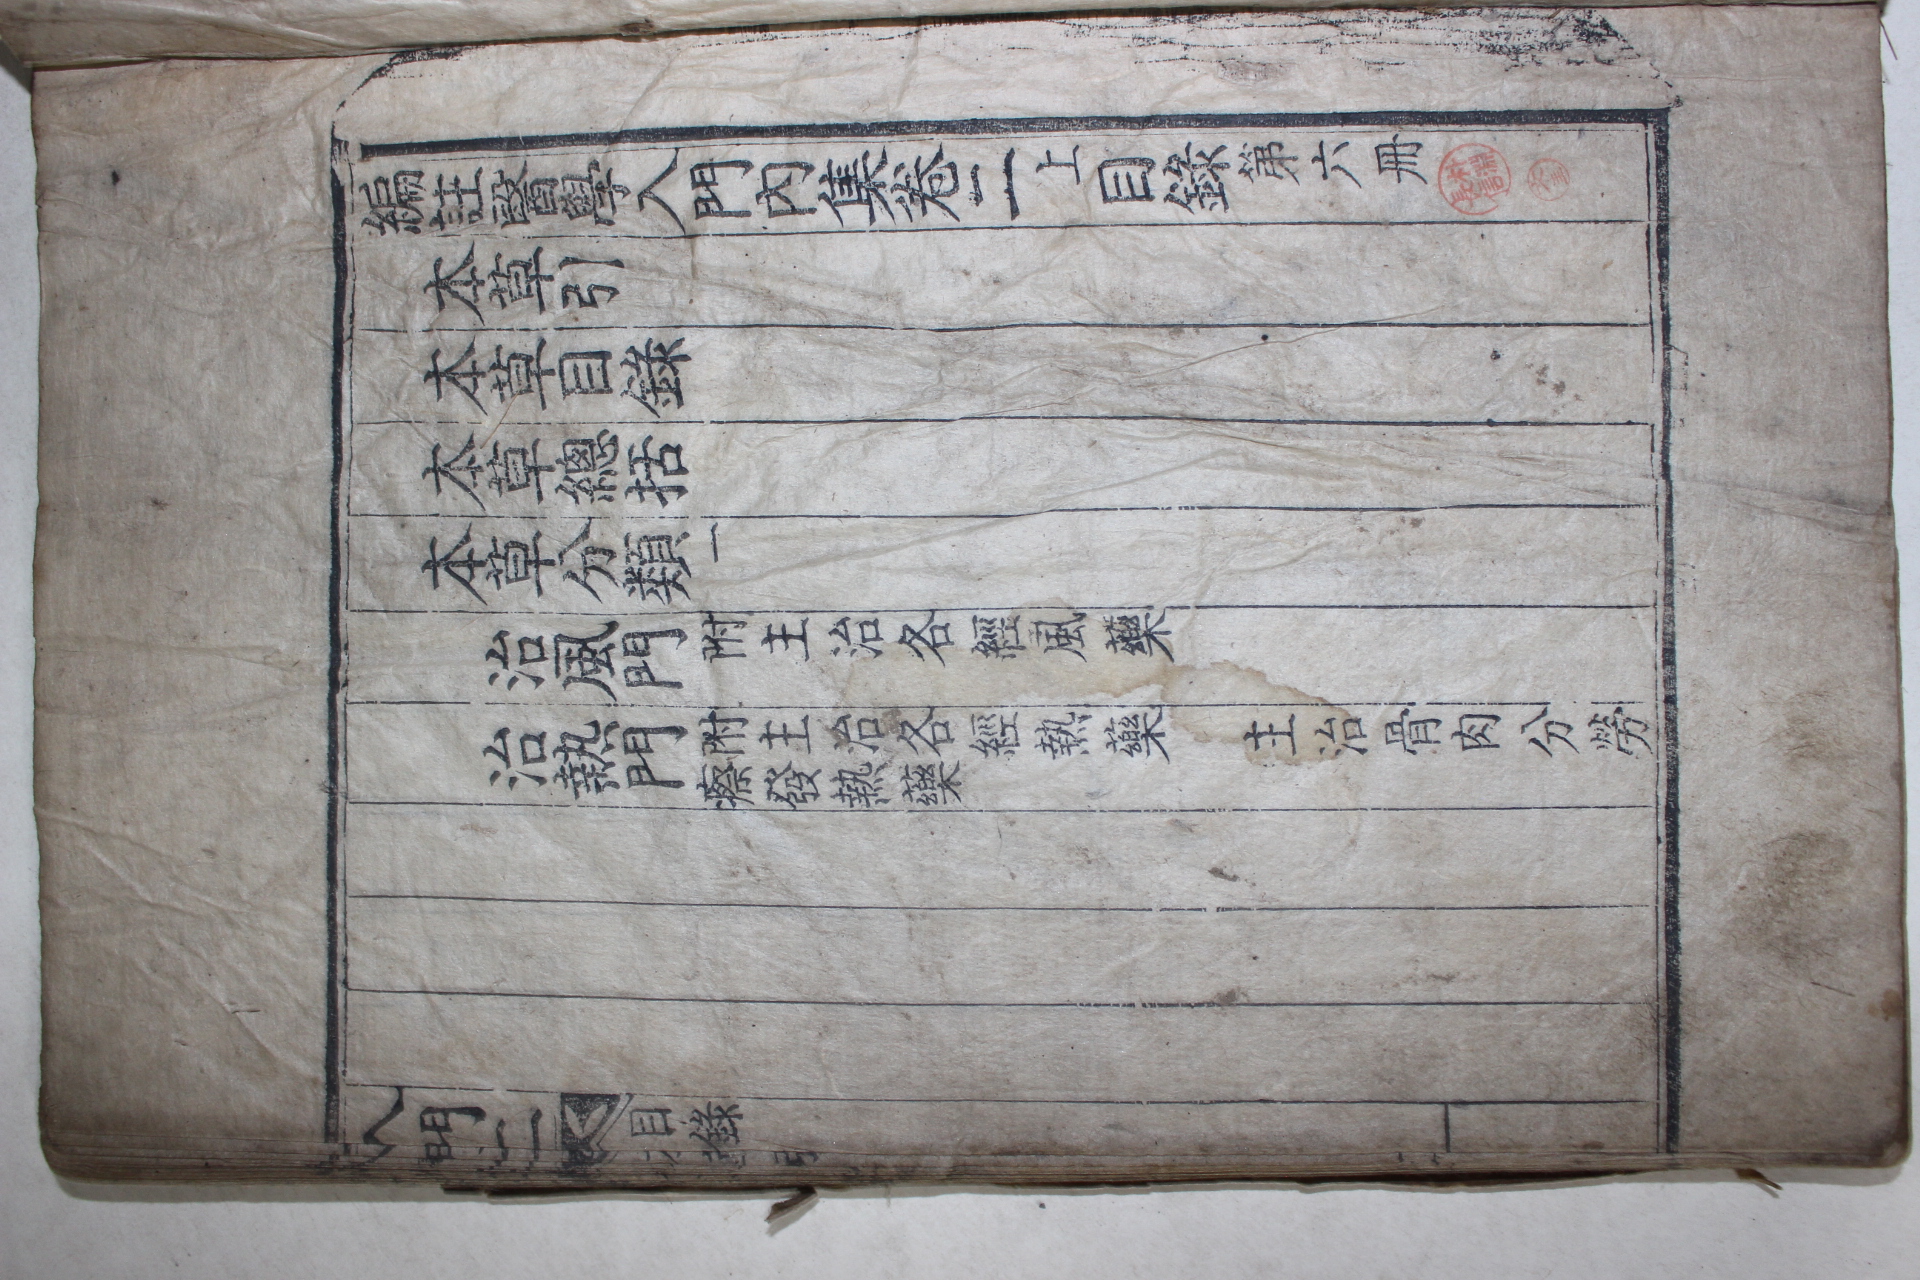 編註醫學入門內集卷二上目錄第六冊
本草引
本草目錄
本草總括
本草分類一
治風門附主治各經風藥
治熱門附主治各經熱藥 主治骨肉分勞
瘵發熱藥
入門二 目錄 一
朴淵
長信